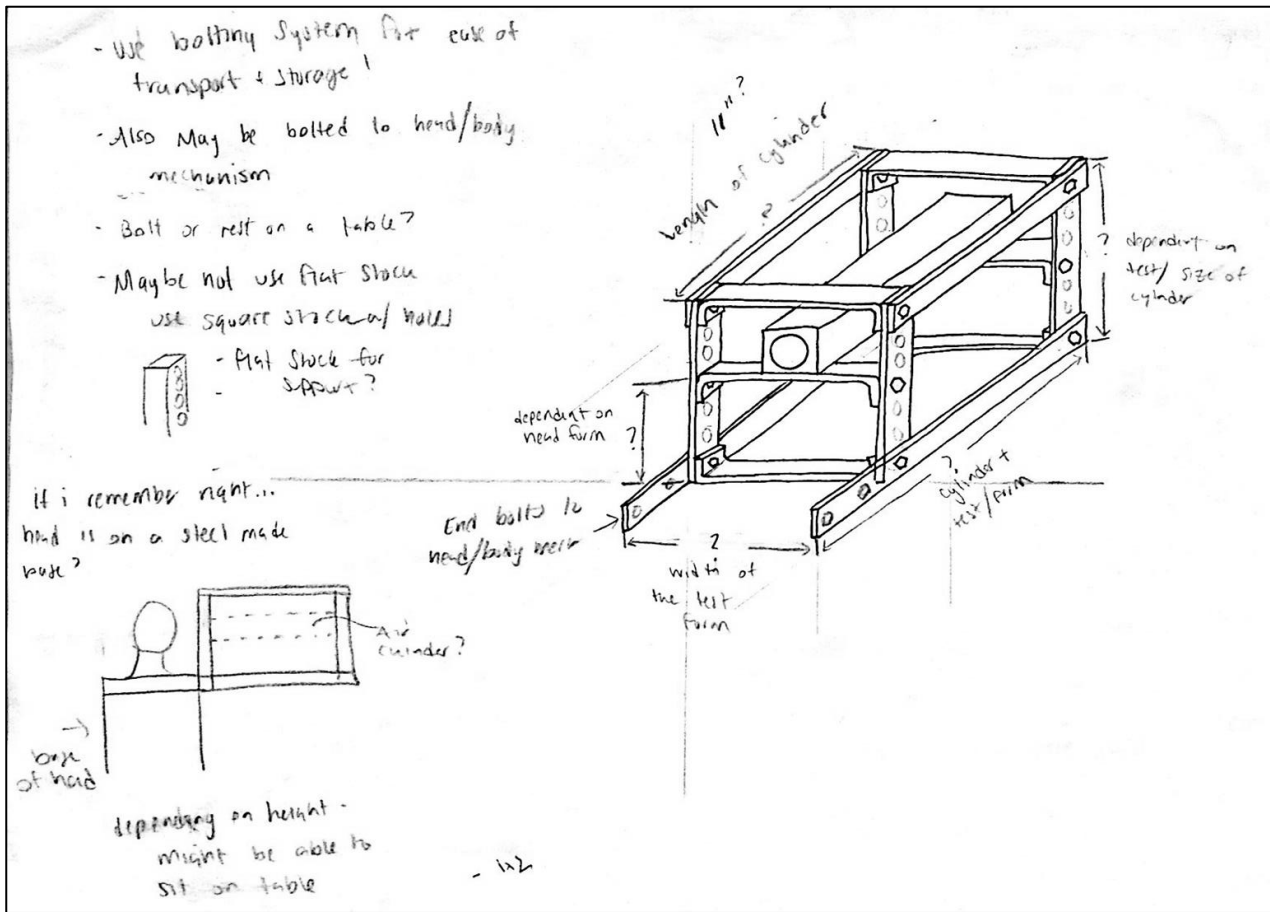 - Use bolting System for ease of
transport + storage!
- Also May be bolted to head/body
mechanism
- Bolt or rest on a table?
- Maybe not use flat stock
use square stock w/ holes
- flat stock for
- support?
if i remember right...
head is on a steel made
base?
Air
Cylinder?
base
of head
depending on height -
might be able to
sit on table
- 1x2
11"?
Length of cylinder
?
? dependent on
test/size of
cylinder
dependent on
head form
?
End bolts to
head/body
?
width of
the test
form
?
cylinder +
test/form